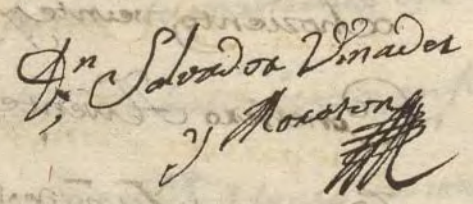 Dn Salvador Vinader
y Moreton